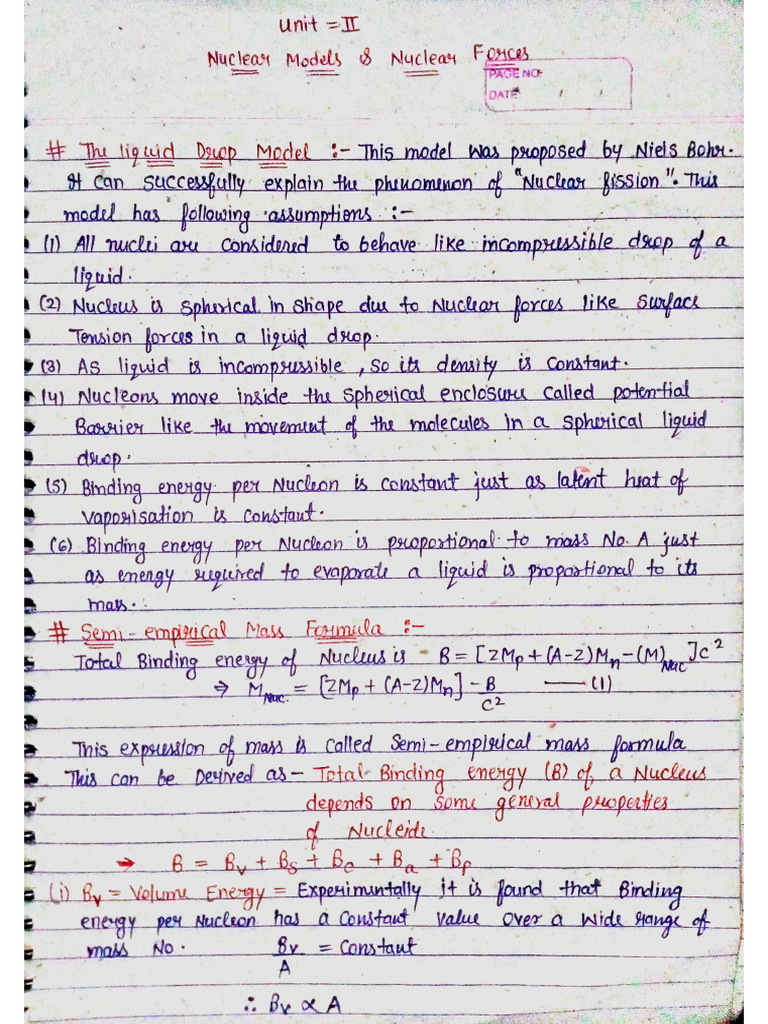 Unit = II
Nuclear Models & Nuclear Forces
PAGE NO.
DATE / /
# The liquid Drop Model :- This model was proposed by Niels Bohr.
It can successfully explain the phenomenon of "Nuclear fission". This
model has following assumptions :-
(1) All nuclei are considered to behave like incompressible drop of a
liquid.
(2) Nucleus is spherical in shape due to Nuclear forces like surface
Tension forces in a liquid drop.
(3) As liquid is incompressible, so its density is constant.
(4) Nucleons move inside the spherical enclosure called potential
Barrier like the movement of the molecules in a spherical liquid
drop.
(5) Binding energy per Nucleon is constant just as latent heat of
vaporisation is constant.
(6) Binding energy per Nucleon is proportional to mass No. A just
as energy required to evaporate a liquid is proportional to its
mass.
# Semi-empirical Mass Formula :-
Total Binding energy of Nucleus is B = [ZMp + (A-Z)Mn - (M)Nuc]C²
⇒ MNuc. = [ZMp + (A-Z)Mn] - B/C² —— (1)
This expression of mass is called Semi-empirical mass formula
This can be Derived as - Total Binding energy (B) of a Nucleus
depends on some general properties
of Nucleide.
→ B = Bv + Bs + Bc + Ba + Bp
(i) Bv = Volume Energy = Experimentally it is found that Binding
energy per Nucleon has a constant value over a wide range of
mass No. Bv/A = Constant
∴ Bv ∝ A